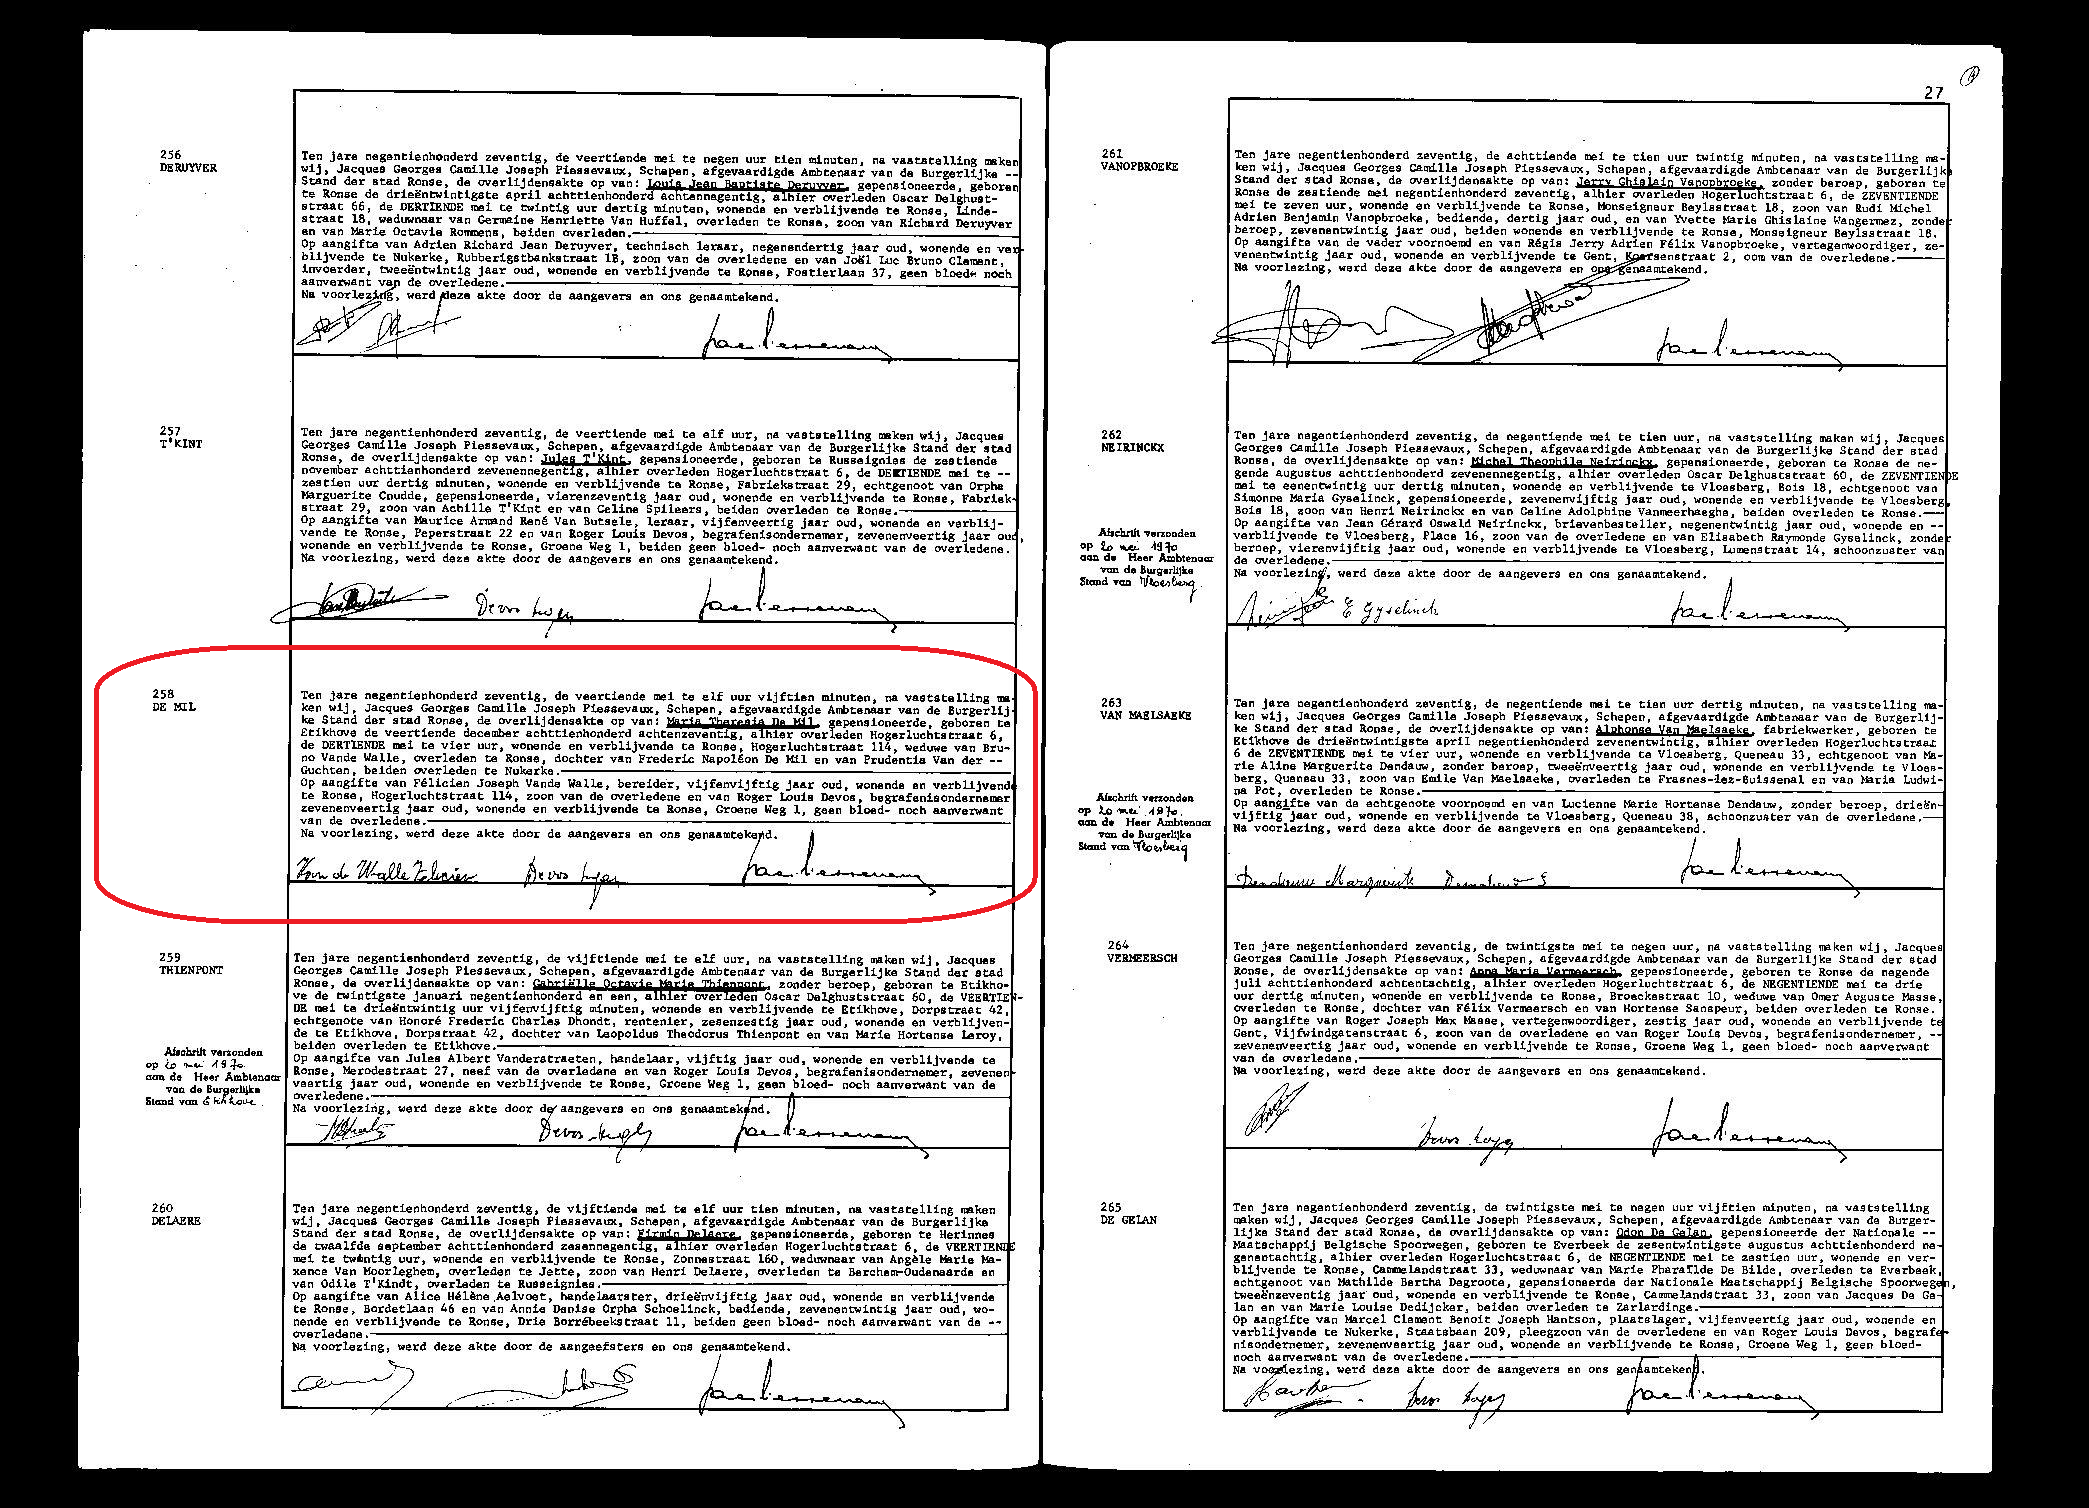 27
256
DERUYVER
Ten jare negentienhonderd zeventig, de veertiende mei te negen uur tien minuten, na vaststelling maken
wij, Jacques Georges Camille Joseph Piessevaux, Schepen, afgevaardigde Ambtenaar van de Burgerlijke --
Stand der stad Ronse, de overlijdensakte op van: Louis Jean Baptiste Deruyver, gepensioneerde, geboren
te Ronse de drieëntwintigste april achttienhonderd achtennegentig, alhier overleden Oscar Delghust-
straat 66, de DERTIENDE mei te twintig uur dertig minuten, wonende en verblijvende te Ronse, Linde-
straat 18, weduwnaar van Germaine Henriette Van Huffel, overleden te Ronse, zoon van Richard Deruyver
en van Marie Octavie Rommens, beiden overleden.
Op aangifte van Adrien Richard Jean Deruyver, technisch leraar, negenendertig jaar oud, wonende en ver-
blijvende te Nukerke, Rubberigstbankstraat 1B, zoon van de overledene en van Joël Luc Bruno Clement,
invoerder, tweeëntwintig jaar oud, wonende en verblijvende te Ronse, Fostierlaan 37, geen bloed- noch
aanverwant van de overledene.
Na voorlezing, werd deze akte door de aangevers en ons genaamtekend.
257
T'KINT
Ten jare negentienhonderd zeventig, de veertiende mei te elf uur, na vaststelling maken wij, Jacques
Georges Camille Joseph Piessevaux, Schepen, afgevaardigde Ambtenaar van de Burgerlijke Stand der stad
Ronse, de overlijdensakte op van: Jules T'Kint, gepensioneerde, geboren te Russeignies de zestiende
november achttienhonderd zevenennegentig, alhier overleden Hogerluchtstraat 6, de DERTIENDE mei te --
zestien uur dertig minuten, wonende en verblijvende te Ronse, Fabriekstraat 29, echtgenoot van Orpha
Marguerite Cnudde, gepensioneerde, vierenzeventig jaar oud, wonende en verblijvende te Ronse, Fabriek-
straat 29, zoon van Achille T'Kint en van Celine Spileers, beiden overleden te Ronse.
Op aangifte van Maurice Armand René Van Butsele, leraar, vijfenveertig jaar oud, wonende en verblij-
vende te Ronse, Peperstraat 22 en van Roger Louis Devos, begrafenisondernemer, zevenenveertig jaar oud,
wonende en verblijvende te Ronse, Groene Weg 1, beiden geen bloed- noch aanverwant van de overledene.
Na voorlezing, werd deze akte door de aangevers en ons genaamtekend.
Devos Roger
258
DE MIL
Ten jare negentienhonderd zeventig, de veertiende mei te elf uur vijftien minuten, na vaststelling ma-
ken wij, Jacques Georges Camille Joseph Piessevaux, Schepen, afgevaardigde Ambtenaar van de Burgerlij-
ke Stand der stad Ronse, de overlijdensakte op van: Maria Theresia De Mil, gepensioneerde, geboren te
Etikhove de veertiende december achttienhonderd achtenzeventig, alhier overleden Hogerluchtstraat 6,
de DERTIENDE mei te vier uur, wonende en verblijvende te Ronse, Hogerluchtstraat 114, weduwe van Bru-
no Vande Walle, overleden te Ronse, dochter van Frederic Napoléon De Mil en van Prudentia Van der --
Guchten, beiden overleden te Nukerke.
Op aangifte van Félicien Joseph Vande Walle, bereider, vijfenvijftig jaar oud, wonende en verblijvende
te Ronse, Hogerluchtstraat 114, zoon van de overledene en van Roger Louis Devos, begrafenisondernemer
zevenenveertig jaar oud, wonende en verblijvende te Ronse, Groene Weg 1, geen bloed- noch aanverwant
van de overledene.
Na voorlezing, werd deze akte door de aangevers en ons genaamtekend.
Van de Walle Felicien Devos Roger
259
THIENPONT
Ten jare negentienhonderd zeventig, de vijftiende mei te elf uur, na vaststelling maken wij, Jacques
Georges Camille Joseph Piessevaux, Schepen, afgevaardigde Ambtenaar van de Burgerlijke Stand der stad
Ronse, de overlijdensakte op van: Gabriëlle Octavie Marie Thienpont, zonder beroep, geboren te Etikho-
ve de twintigste januari negentienhonderd en een, alhier overleden Oscar Delghuststraat 60, de VEERTIEN-
DE mei te drieëntwintig uur vijfenvijftig minuten, wonende en verblijvende te Etikhove, Dorpstraat 42,
echtgenote van Honoré Frederic Charles Dhondt, rentenier, zesenzestig jaar oud, wonende en verblijven-
de te Etikhove, Dorpstraat 42, dochter van Leopoldus Theodorus Thienpont en van Marie Hortense Leroy,
beiden overleden te Etikhove.
Op aangifte van Jules Albert Vanderstraeten, handelaar, vijftig jaar oud, wonende en verblijvende te
Ronse, Merodestraat 27, neef van de overledene en van Roger Louis Devos, begrafenisondernemer, zevenen-
veertig jaar oud, wonende en verblijvende te Ronse, Groene Weg 1, geen bloed- noch aanverwant van de
overledene.
Na voorlezing, werd deze akte door de aangevers en ons genaamtekend.
Afschrift verzonden
op 20 mei 1970
aan de Heer Ambtenaar
van de Burgerlijke
Stand van Etikhove.
Devos Roger
260
DELAERE
Ten jare negentienhonderd zeventig, de vijftiende mei te elf uur tien minuten, na vaststelling maken
wij, Jacques Georges Camille Joseph Piessevaux, Schepen, afgevaardigde Ambtenaar van de Burgerlijke
Stand der stad Ronse, de overlijdensakte op van: Firmin Delaere, gepensioneerde, geboren te Herinnes
de twaalfde september achttienhonderd zesennegentig, alhier overleden Hogerluchtstraat 6, de VEERTIENDE
mei te twintig uur, wonende en verblijvende te Ronse, Zonnestraat 160, weduwnaar van Angèle Marie Ma-
xence Van Moorleghem, overleden te Jette, zoon van Henri Delaere, overleden te Berchem-Oudenaarde en
van Odile T'Kindt, overleden te Russeignies.
Op aangifte van Alice Hélène Aelvoet, handelaarster, drieënvijftig jaar oud, wonende en verblijvende
te Ronse, Bordetlaan 46 en van Annie Denise Orpha Schoelinck, bediende, zevenentwintig jaar oud, wo-
nende en verblijvende te Ronse, Drie Borrebeekstraat 11, beiden geen bloed- noch aanverwant van de --
overledene.
Na voorlezing, werd deze akte door de aangeefsters en ons genaamtekend.
261
VANOPBROEKE
Ten jare negentienhonderd zeventig, de achttiende mei te tien uur twintig minuten, na vaststelling ma-
ken wij, Jacques Georges Camille Joseph Piessevaux, Schepen, afgevaardigde Ambtenaar van de Burgerlijke
Stand der stad Ronse, de overlijdensakte op van: Jerry Ghislain Vanopbroeke, zonder beroep, geboren te
Ronse de zestiende mei negentienhonderd zeventig, alhier overleden Hogerluchtstraat 6, de ZEVENTIENDE
mei te zeven uur, wonende en verblijvende te Ronse, Monseigneur Beylsstraat 18, zoon van Rudi Michel
Adrien Benjamin Vanopbroeke, bediende, dertig jaar oud, en van Yvette Marie Ghislaine Wangermez, zonder
beroep, zevenentwintig jaar oud, beiden wonende en verblijvende te Ronse, Monseigneur Beylsstraat 18.
Op aangifte van de vader voornoemd en van Régis Jerry Adrien Félix Vanopbroeke, vertegenwoordiger, ze-
venentwintig jaar oud, wonende en verblijvende te Gent, Koersenstraat 2, oom van de overledene.
Na voorlezing, werd deze akte door de aangevers en ons genaamtekend.
262
NEIRINCKX
Ten jare negentienhonderd zeventig, de negentiende mei te tien uur, na vaststelling maken wij, Jacques
Georges Camille Joseph Piessevaux, Schepen, afgevaardigde Ambtenaar van de Burgerlijke Stand der stad
Ronse, de overlijdensakte op van: Michel Theophile Neirinckx, gepensioneerde, geboren te Ronse de ne-
gende augustus achttienhonderd zevenennegentig, alhier overleden Oscar Delghuststraat 60, de ZEVENTIENDE
mei te eenentwintig uur dertig minuten, wonende en verblijvende te Vloesberg, Bois 18, echtgenoot van
Simonne Maria Gyselinck, gepensioneerde, zevenenvijftig jaar oud, wonende en verblijvende te Vloesberg,
Bois 18, zoon van Henri Neirinckx en van Celine Adolphine Vanmeerhaeghe, beiden overleden te Ronse.
Op aangifte van Jean Gérard Oswald Neirinckx, brievenbesteller, negenentwintig jaar oud, wonende en --
verblijvende te Vloesberg, Place 16, zoon van de overledene en van Elisabeth Raymonde Gyselinck, zonder
beroep, vierenvijftig jaar oud, wonende en verblijvende te Vloesberg, Lumenstraat 14, schoonzuster van
de overledene.
Na voorlezing, werd deze akte door de aangevers en ons genaamtekend.
Afschrift verzonden
op 20 mei 1970
aan de Heer Ambtenaar
van de Burgerlijke
Stand van Vloesberg.
E Gyselinck
263
VAN MAELSAEKE
Ten jare negentienhonderd zeventig, de negentiende mei te tien uur dertig minuten, na vaststelling ma-
ken wij, Jacques Georges Camille Joseph Piessevaux, Schepen, afgevaardigde Ambtenaar van de Burgerlij-
ke Stand der stad Ronse, de overlijdensakte op van: Alphonse Van Maelsaeke, fabriekwerker, geboren te
Etikhove de drieëntwintigste april negentienhonderd zevenentwintig, alhier overleden Hogerluchtstraat
6 de ZEVENTIENDE mei te vier uur, wonende en verblijvende te Vloesberg, Queneau 33, echtgenoot van Ma-
rie Aline Marguerite Dendauw, zonder beroep, tweeënveertig jaar oud, wonende en verblijvende te Vloes-
berg, Queneau 33, zoon van Emile Van Maelsaeke, overleden te Frasnes-lez-Buissenal en van Maria Ludwi-
na Pot, overleden te Ronse.
Op aangifte van de echtgenote voornoemd en van Lucienne Marie Hortense Dendauw, zonder beroep, drieën-
vijftig jaar oud, wonende en verblijvende te Vloesberg, Queneau 38, schoonzuster van de overledene.
Na voorlezing, werd deze akte door de aangevers en ons genaamtekend.
Afschrift verzonden
op 20 mei 1970.
aan de Heer Ambtenaar
van de Burgerlijke
Stand van Vloesberg
Dendauw Marguerite
264
VERMEERSCH
Ten jare negentienhonderd zeventig, de twintigste mei te negen uur, na vaststelling maken wij, Jacques
Georges Camille Joseph Piessevaux, Schepen, afgevaardigde Ambtenaar van de Burgerlijke Stand der stad
Ronse, de overlijdensakte op van: Anna Maria Vermeersch, gepensioneerde, geboren te Ronse de negende
juli achttienhonderd achtentachtig, alhier overleden Hogerluchtstraat 6, de NEGENTIENDE mei te drie
uur dertig minuten, wonende en verblijvende te Ronse, Broeckestraat 10, weduwe van Omer Auguste Masse,
overleden te Ronse, dochter van Félix Vermeersch en van Hortense Sanapeur, beiden overleden te Ronse.
Op aangifte van Roger Joseph Max Masse, vertegenwoordiger, zestig jaar oud, wonende en verblijvende te
Gent, Vijfwindgatenstraat 6, zoon van de overledene en van Roger Louis Devos, begrafenisondernemer, --
zevenenveertig jaar oud, wonende en verblijvende te Ronse, Groene Weg 1, geen bloed- noch aanverwant
van de overledene.
Na voorlezing, werd deze akte door de aangevers en ons genaamtekend.
Devos Roger
265
DE GELAN
Ten jare negentienhonderd zeventig, de twintigste mei te negen uur vijftien minuten, na vaststelling
maken wij, Jacques Georges Camille Joseph Piessevaux, Schepen, afgevaardigde Ambtenaar van de Burger-
lijke Stand der stad Ronse, de overlijdensakte op van: Odon De Gelan, gepensioneerde der Nationale --
Maatschappij Belgische Spoorwegen, geboren te Everbeek de zesentwintigste augustus achttienhonderd ne-
genentachtig, alhier overleden Hogerluchtstraat 6, de NEGENTIENDE mei te zestien uur, wonende en ver-
blijvende te Ronse, Cammelandstraat 33, weduwnaar van Marie Pharaïlde De Bilde, overleden te Everbeek,
echtgenoot van Mathilde Bertha Degroote, gepensioneerde der Nationale Maatschappij Belgische Spoorwegen,
tweeënzeventig jaar oud, wonende en verblijvende te Ronse, Cammelandstraat 33, zoon van Jacques De Ge-
lan en van Marie Louise Dedijcker, beiden overleden te Zarlardinge.
Op aangifte van Marcel Clement Benoit Joseph Hantson, plaatslager, vijfenveertig jaar oud, wonende en
verblijvende te Nukerke, Staatsbaan 209, pleegzoon van de overledene en van Roger Louis Devos, begrafe-
nisondernemer, zevenenveertig jaar oud, wonende en verblijvende te Ronse, Groene Weg 1, geen bloed-
noch aanverwant van de overledene.
Na voorlezing, werd deze akte door de aangevers en ons genaamtekend.
Devos Roger